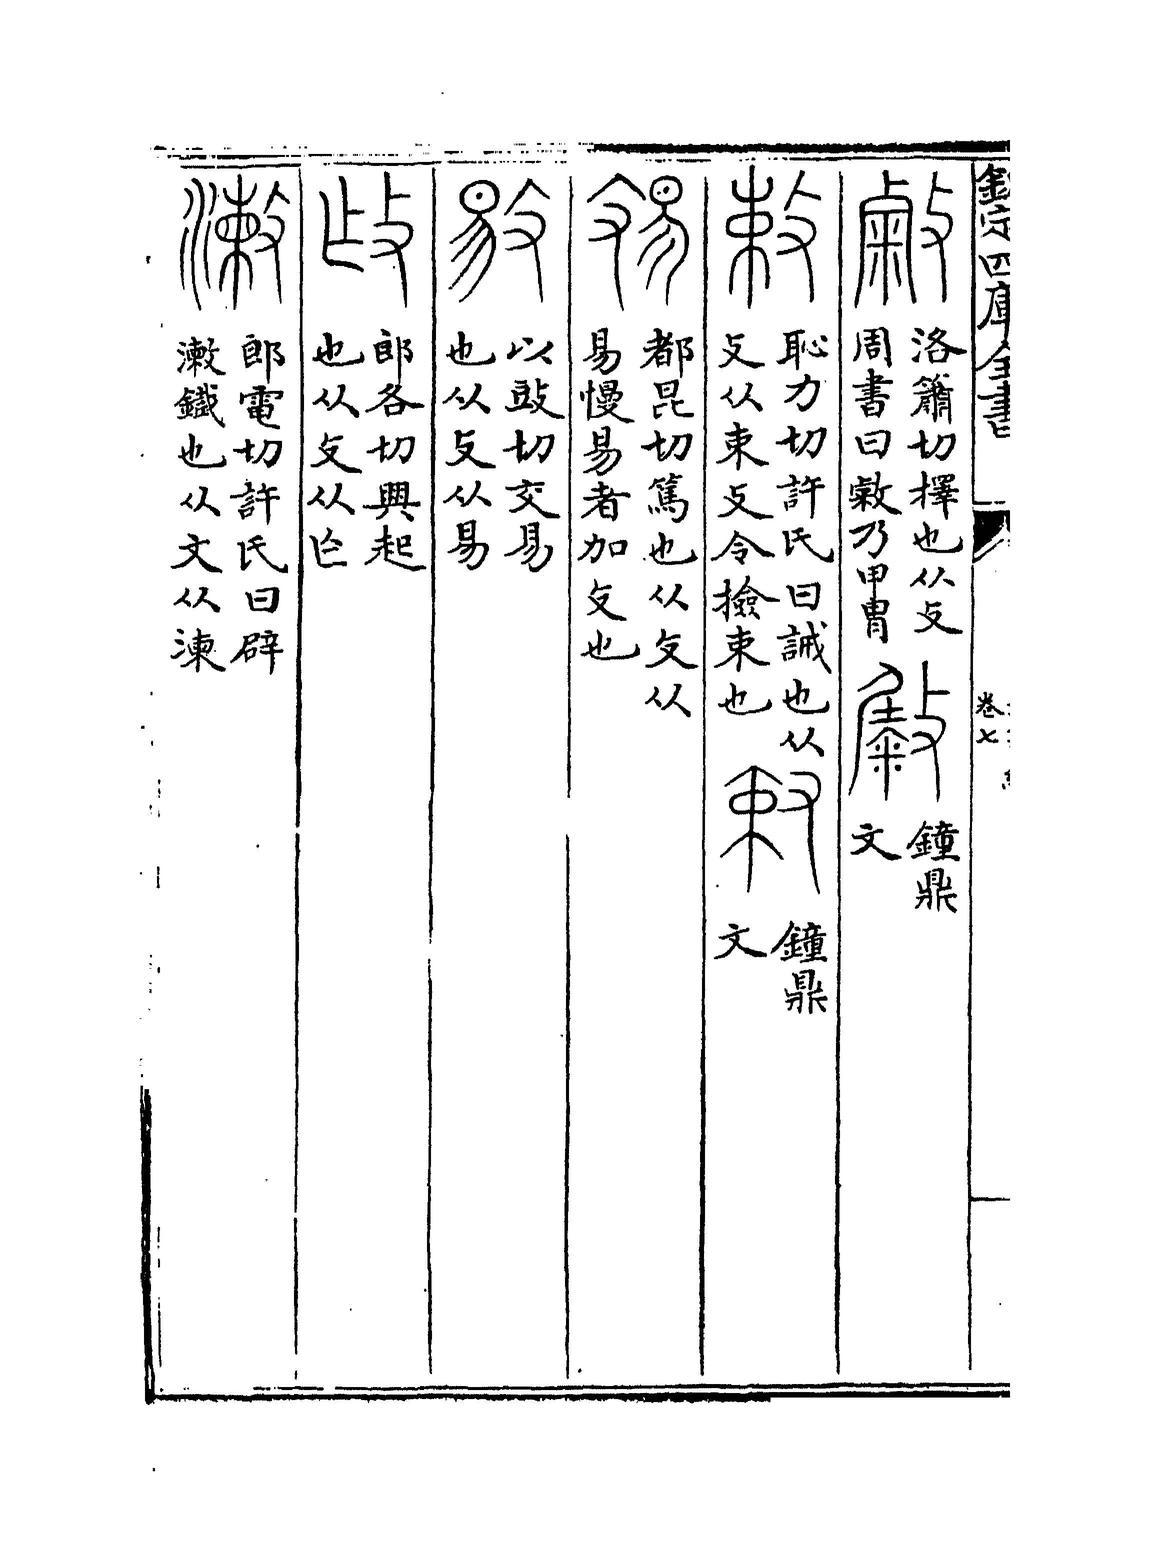 欽定四庫全書
卷七
洛簫切擇也从攴
周書曰敹乃甲冑
鐘鼎
文
恥力切許氏曰誡也从
攴从束攴令撿束也
鐘鼎
文
都昆切篤也从攴从
昜慢昜者加攴也
以豉切交易
也从攴从易
郎各切興起
也从攴从亾
郎電切許氏曰辟
漱鐵也从文从涑